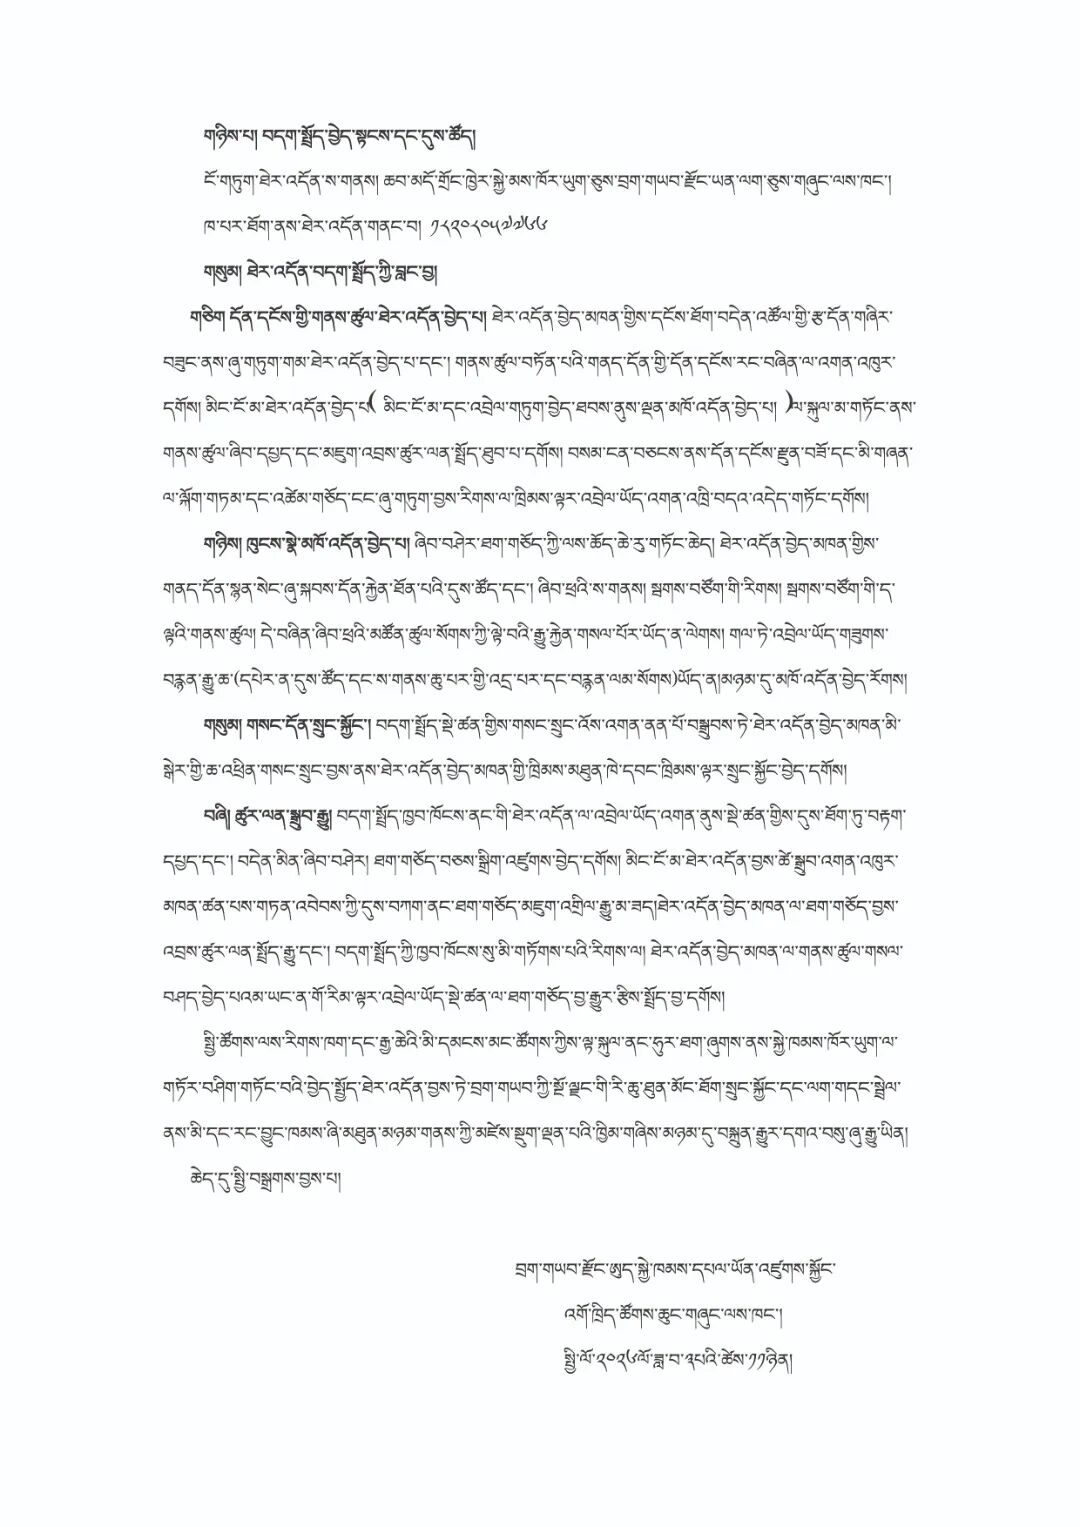 གཉིས་པ། བདག་སྤྲོད་བྱེད་སྟངས་དང་དུས་ཚོད།
ངོ་གཏུག་ཐེར་འདོན་ས་གནས། ཆབ་མདོ་གྲོང་ཁྱེར་སྐྱེ་མས་ཁོར་ཡུག་ཅུས་བྲག་གཡབ་རྫོང་ཡན་ལག་ཅུས་གཞུང་ལས་ཁང་།
ཁ་པར་ཐོག་ནས་ཐེར་འདོན་གནང་བ། ༡༨༢༠༨༠༥༧༧༦༦
གསུམ། ཐེར་འདོན་བདག་སྤྲོད་ཀྱི་བླང་བྱ།
གཅིག དོན་དངོས་ཀྱི་གནས་ཚུལ་ཐེར་འདོན་བྱེད་པ། ཐེར་འདོན་བྱེད་མཁན་གྱིས་དངོས་ཐོག་བདེན་འཚོལ་གྱི་རྩ་དོན་གཞིར་
བཟུང་ནས་ཞུ་གཏུག་གམ་ཐེར་འདོན་བྱེད་པ་དང་། གནས་ཚུལ་བཏོན་པའི་གནད་དོན་གྱི་དོན་དངོས་རང་བཞིན་ལ་འགན་འཁུར་
དགོས། མིང་ངོ་མ་ཐེར་འདོན་བྱེད་པ( མིང་ངོ་མ་དང་འབྲེལ་གཏུག་བྱེད་ཐབས་ནུས་ལྡན་མཁོ་འདོན་བྱེད་པ། )ལ་སྐུལ་མ་གཏོང་ནས་
གནས་ཚུལ་ཞིབ་དཔྱད་དང་མཇུག་འབྲས་ཚུར་ལན་སྤྲོད་ཐུབ་པ་དགོས། བསམ་ངན་བཅངས་ནས་དོན་དངོས་རྫུན་བཟོ་དང་མི་གཞན་
ལ་ལྐོག་གཏམ་དང་འཚེམ་གཅོད་ངང་ཞུ་གཏུག་བྱས་རིགས་ལ་ཁྲིམས་ལྟར་འབྲེལ་ཡོད་འགན་འཁྲི་བདའ་འདེད་གཏོང་དགོས།
གཉིས། ཁུངས་སྣེ་མཁོ་འདོན་བྱེད་པ། ཞིབ་བཤེར་ཐག་གཅོད་ཀྱི་ལས་ཆོད་ཆེ་རུ་གཏོང་ཆེད། ཐེར་འདོན་བྱེད་མཁན་གྱིས་
གནད་དོན་སྙན་སེང་ཞུ་སྐབས་དོན་རྐྱེན་ཐོན་པའི་དུས་ཚོད་དང་། ཞིབ་ཕྲའི་ས་གནས། སྦགས་བཙོག་གི་རིགས། སྦགས་བཙོག་གི་ད་
ལྟའི་གནས་ཚུལ། དེ་བཞིན་ཞིབ་ཕྲའི་མཚོན་ཚུལ་སོགས་ཀྱི་ལྟེ་བའི་རྒྱུ་རྐྱེན་གསལ་པོར་ཡོད་ན་ལེགས། གལ་ཏེ་འབྲེལ་ཡོད་གཟུགས་
བརྙན་རྒྱུ་ཆ་(དཔེར་ན་དུས་ཚོད་དང་ས་གནས་ཆུ་པར་གྱི་འདྲ་པར་དང་བརྙན་ལམ་སོགས)ཡོད་ན།མཉམ་དུ་མཁོ་འདོན་བྱེད་རོགས།
གསུམ། གསང་དོན་སྲུང་སྐྱོང་། བདག་སྤྲོད་སྡེ་ཚན་གྱིས་གསང་སྲུང་འོས་འགན་ནན་པོ་བསྒྲུབས་ཏེ་ཐེར་འདོན་བྱེད་མཁན་མི་
སྒེར་གྱི་ཆ་འཕྲིན་གསང་སྲུང་བྱས་ནས་ཐེར་འདོན་བྱེད་མཁན་གྱི་ཁྲིམས་མཐུན་ཁེ་དབང་ཁྲིམས་ལྟར་སྲུང་སྐྱོང་བྱེད་དགོས།
བཞི། ཚུར་ལན་སྒྲུབ་རྒྱུ། བདག་སྤྲོད་ཁྱབ་ཁོངས་ནང་གི་ཐེར་འདོན་ལ་འབྲེལ་ཡོད་འགན་ནུས་སྡེ་ཚན་གྱིས་དུས་ཐོག་ཏུ་བརྟག་
དཔྱད་དང་། བདེན་མིན་ཞིབ་བཤེར། ཐག་གཅོད་བཅས་སྒྲིག་འཛུགས་བྱེད་དགོས། མིང་ངོ་མ་ཐེར་འདོན་བྱས་ཚེ་སྒྲུབ་འགན་འཁུར་
མཁན་ཚན་པས་གཏན་འབེབས་ཀྱི་དུས་བཀག་ནང་ཐག་གཅོད་མཇུག་འགྲིལ་རྒྱུ་མ་ཟད།ཐེར་འདོན་བྱེད་མཁན་ལ་ཐག་གཅོད་བྱས་
འབྲས་ཚུར་ལན་སྤྲོད་རྒྱུ་དང་། བདག་སྤྲོད་ཀྱི་ཁྱབ་ཁོངས་སུ་མི་གཏོགས་པའི་རིགས་ལ། ཐེར་འདོན་བྱེད་མཁན་ལ་གནས་ཚུལ་གསལ་
བཤད་བྱེད་པའམ་ཡང་ན་གོ་རིམ་ལྟར་འབྲེལ་ཡོད་སྡེ་ཚན་ལ་ཐག་གཅོད་བྱ་རྒྱུར་རྩིས་སྤྲོད་བྱ་དགོས།
སྤྱི་ཚོགས་ལས་རིགས་ཁག་དང་རྒྱ་ཆེའི་མི་དམངས་མང་ཚོགས་ཀྱིས་ལྟ་སྐུལ་ནང་ཧུར་ཐག་ཞུགས་ནས་སྐྱེ་ཁམས་ཁོར་ཡུག་ལ་
གཏོར་བཤིག་གཏོང་བའི་བྱེད་སྤྱོད་ཐེར་འདོན་བྱས་ཏེ་བྲག་གཡབ་ཀྱི་སྔོ་ལྗང་གི་རི་ཆུ་ཐུན་མོང་ཐོག་སྲུང་སྐྱོང་དང་ལག་གདང་སྦྲེལ་
ནས་མི་དང་རང་བྱུང་ཁམས་ཞི་མཐུན་མཉམ་གནས་ཀྱི་མཛེས་སྡུག་ལྡན་པའི་ཁྱིམ་གཞིས་མཉམ་དུ་བསྐྲུན་རྒྱུར་དགའ་བསུ་ཞུ་རྒྱུ་ཡིན།
ཆེད་དུ་སྤྱི་བསྒྲགས་བྱས་པ།
བྲག་གཡབ་རྫོང་ཨུད་སྐྱེ་ཁམས་དཔལ་ཡོན་འཛུགས་སྐྱོང་
འགོ་ཁྲིད་ཚོགས་ཆུང་གཞུང་ལས་ཁང་།
སྤྱི་ལོ་༢༠༢༦ལོ་ཟླ་བ་༣པའི་ཚེས་༡༡ཉིན།